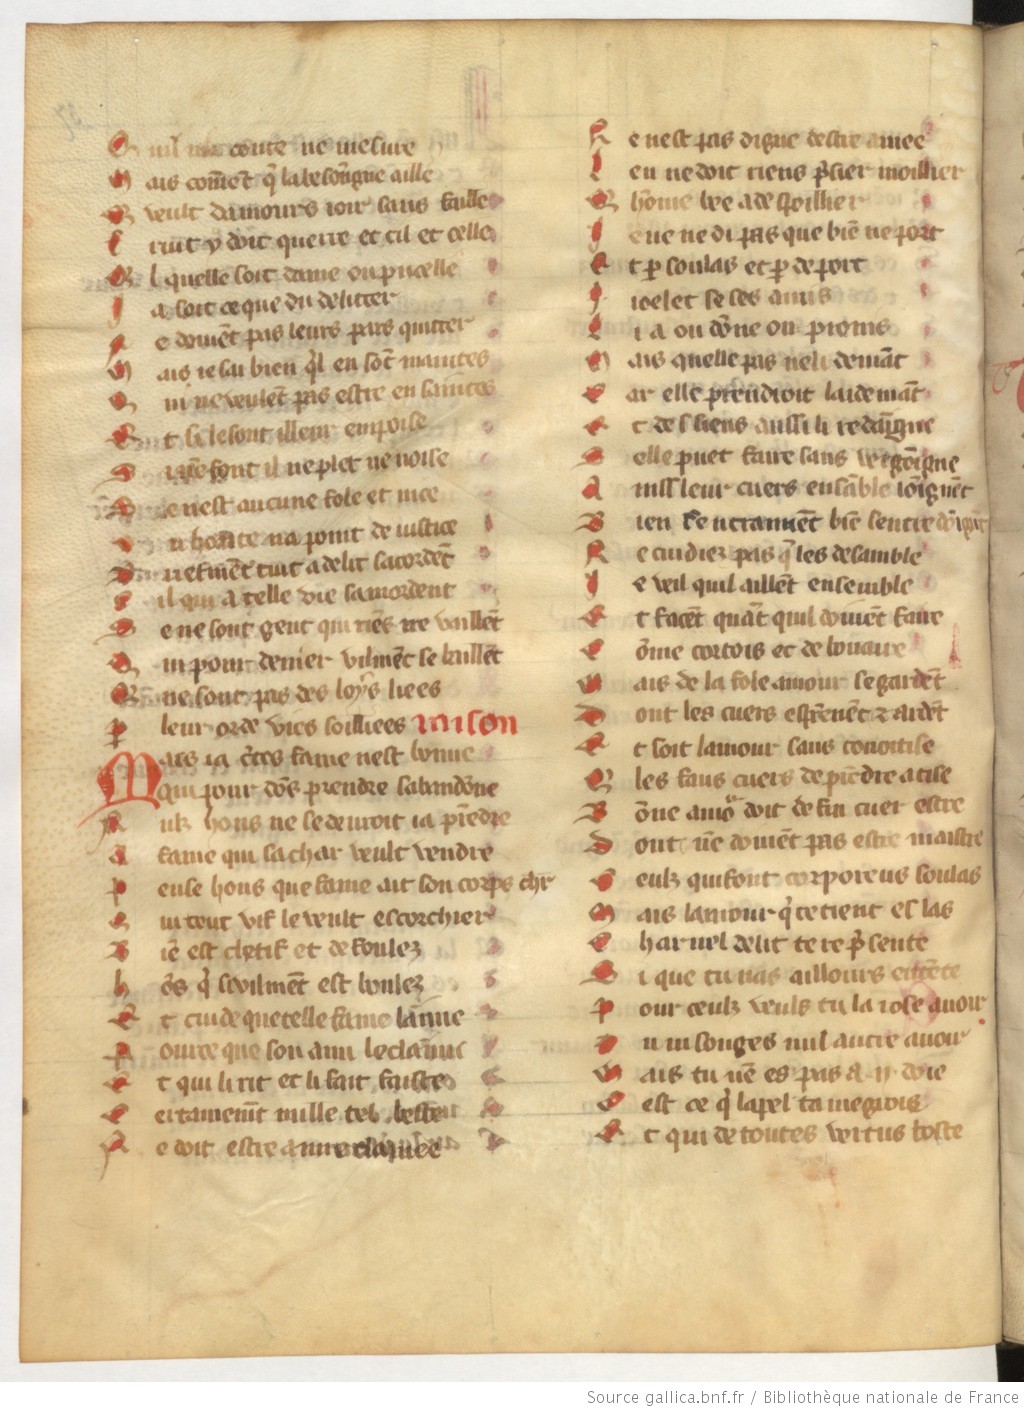 S nil conte ne mesure
M ais com̃ent q̃ la besõngne aille
Q veult damours ioir sans faille
F ruit y doit querre et cil et celle
Q l quelle soit dame ou pucelle
I a soit ce que du deliter
N e doiuẽt pas leurs pars quitter
M ais ie sai bien q̃l en sõt maintes
Q ui ne veulẽt pas estre en saintes
E t selesont il leur empoise
S i nẽ font il ne plet ne noise
N e nest aucune fole et nice
V u honte na point de iustice
B riefmẽt tuit a delit sacordẽt
C il qui a celle vie samordent
S e ne sont gent qui riẽs ne vaillẽt
Q ui pour denier vilmẽt se baillẽt
Q ne sont pas des loys liees
P leur orde vies soilliees raison
M ais ia c̃tes fame nest bonne
qui pour dõs prendre sabandõne
N ulz hons ne se deuroit ia prẽdre
A fame qui sa char veult vendre
P ense hons que fame ait son corps chr
Q ui tout vif le veult escorchier
B iẽ est chetif et defoulez
h õs q̃ si vilmẽt est boulez
E t cuide que telle fame laime
P our ce que son ami le claime
E t qui li rit et li fait feste
C ertainemẽt nulle tel beste
N e doit estre amie clamee
N e nest pas digne destre amee
L en ne doit riens p̃sier moillier
Q home bee a despoillier
I e ne di pas que biẽ ne port
E t p̱ soulas et p̱ deport
I ioelet se ses amis
L i a ou dõne ou promis
M ais quelle pas ne li demãt
C ar elle prendroit laidemãt
E t des siens aussi li redaĩgne
S elle puet faire sans vergõigne
A inssi leur cuers ensãble ioĩgnẽt
B ien sentraiment biẽ sentredõignẽt
N e cuidiez pas q̃ les desamble
I e veil quil aillẽt ensemble
E t facẽt quãt quil doiuẽt faire
C õme cortois et debonaire
M ais de la fole amour se gardẽt
D ont les cuers esprẽnẽt ⁊ ardẽt
E t soit lamour sans conoitise
Q les faus cuers de prẽdre atise
B õne amor doit de fin cuer estre
D ont nẽ doiuẽt pas estre maistre
C eulz qui font corporeus soulas
M ais lamour q̃ te tient es las
C harnel delit te rep̃sente
S i que tu nas aillours entẽte
P our ceulz veuls tu la rose auoir
N i ni songes nul autre auoir
M ais tu nẽ es pas a .ij. doie
C est ce q̃ la pel tamegroie
E t qui de toutes vertus toste
Source gallica.bnf.fr / Bibliothèque nationale de France